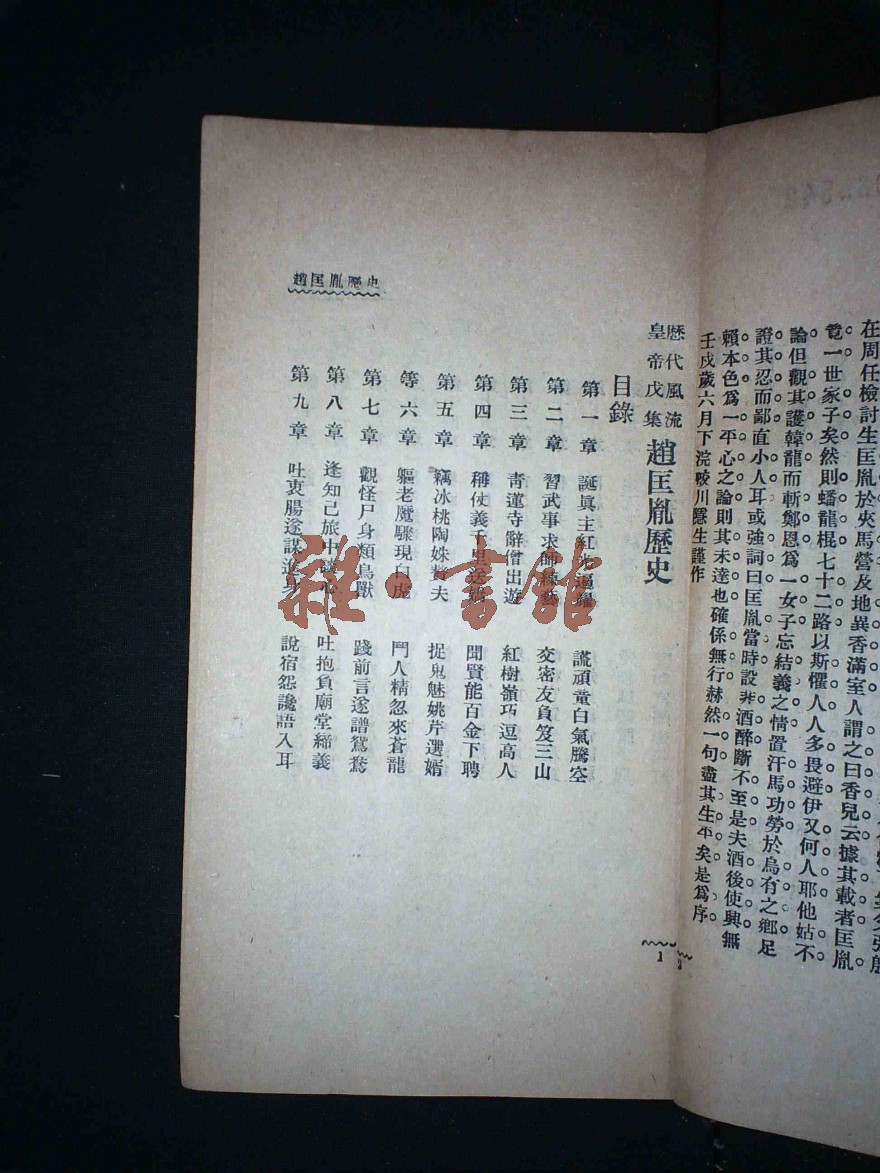 在周任檢討生匡胤於夾馬營及地異香滿室人謂之曰香兒云據其載者匡胤
竟一世家子矣然則蟠龍棍七十二路以斯懼人人多畏避伊又何人耶他姑不
論但觀其護韓龍而斬鄭恩爲一女子忘結義之情置汗馬功勞於烏有之鄉足
證其忍而鄙直小人耳或強詞曰匡胤當時設非酒醉斷不至是夫酒後使興無
賴本色爲一平心之論則其未達也確係無行赫然一句盡其生平矣是爲序
壬戌歲六月下浣晈川隱生謹作
歷代風流
皇帝戊集
趙匡胤歷史
目錄
第一章 誕真主紅 謊頑童白氣騰空
第二章 習武事求師 交密友負笈三山
第三章 青蓮寺辭僧出遊 紅樹嶺巧逗高人
第四章 稱仗義千里送 聞賢能百金下聘
第五章 竊冰桃陶姝贅夫 捉鬼魅姚芹選婿
等六章 軀老魔驟現白虎 鬥人精忽來蒼龍
第七章 觀怪尸身類鳥獸 踐前言遂譜鴛鴦
第八章 逢知己旅中談心 吐抱負廟堂締義
第九章 吐衷腸遂謀進身 說宿怨讒語入耳
趙匡胤歷史
1
雜·書館